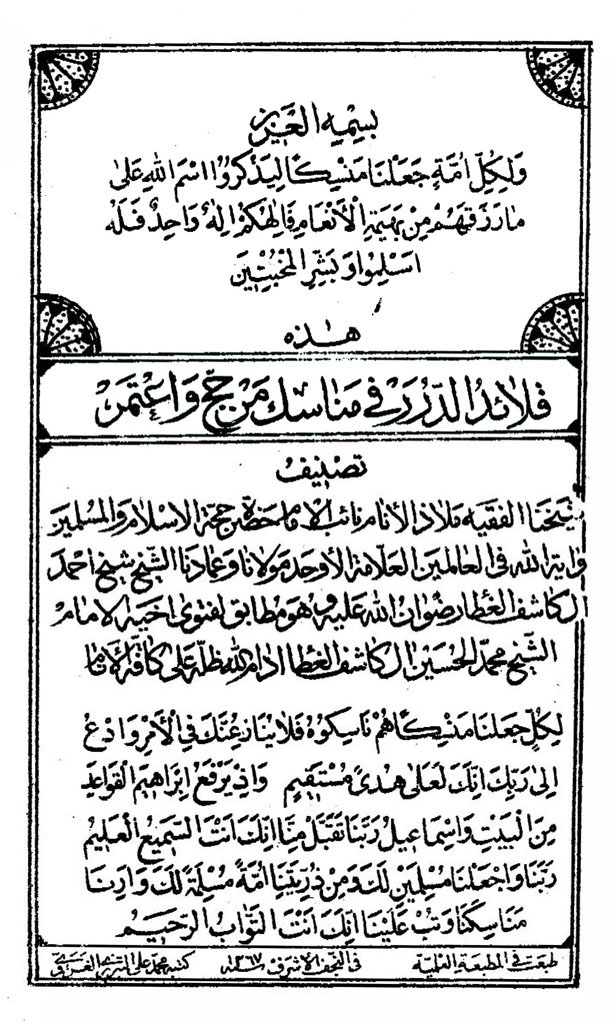 بِسْمِهِ الْعَزِيزِ
وَلِكُلِّ اُمَّةٍ جَعَلْنَا مَنْسِكًا لِيَذْكُرُوا اسْمَ اللهِ عَلىٰ
مٰا رَزَقَهُمْ مِنْ بَهِيمَةِ الْأَنْعٰامِ فَاِلٰهُكُمْ اِلٰهٌ وٰاحِدٌ فَلَهُ
اَسْلِمُوا وَبَشِّرِ الْمُخْبِتِينَ
هٰذِه
قَلٰائِدُ الدُّرَرِ فِي مَنٰاسِكِ مَنْ حَجَّ وَاعْتَمَرَ
تصنيف
شيخنا الفقيه ملاذ الأنام نائب الامام حضرة حجة الاسلام والمسلمين
واية الله في العالمين العلامة الأوحد مولانا وعمادنا الشيخ شيخ احمد
ال كاشف الغطا رضوان الله عليه وهو مطابق لفتوى اخيه الامام
الشيخ محمد الحسين ال كاشف الغطا ادام الله ظله على كافة الأنام
لِكُلٍّ جَعَلْنٰا مَنْسِكًا هُمْ نٰاسِكُوهُ فَلٰا يُنٰازِعُنَّكَ فِي الْأَمْرِ وَادْعُ
اِلىٰ رَبِّكَ اِنَّكَ لَعَلىٰ هُدىً مُسْتَقِيمٍ وَاِذْ يَرْفَعُ اِبْرٰاهِيمُ الْقَوٰاعِدَ
مِنَ الْبَيْتِ وَاِسْمٰاعِيلُ رَبَّنٰا تَقَبَّلْ مِنّٰا اِنَّكَ اَنْتَ السَّمِيعُ الْعَلِيمُ
رَبَّنٰا وَاجْعَلْنٰا مُسْلِمَيْنِ لَكَ وَمِنْ ذُرِّيَّتِنٰا اُمَّةً مُسْلِمَةً لَكَ وَاَرِنٰا
مَنٰاسِكَنٰا وَتُبْ عَلَيْنٰا اِنَّكَ اَنْتَ التَّوّٰابُ الرَّحِيمُ
طبعت في المطبعة العلمية في النجف الاشرف سنه ١٣٦٧ كتبه محمد علي التبريزي الغروي